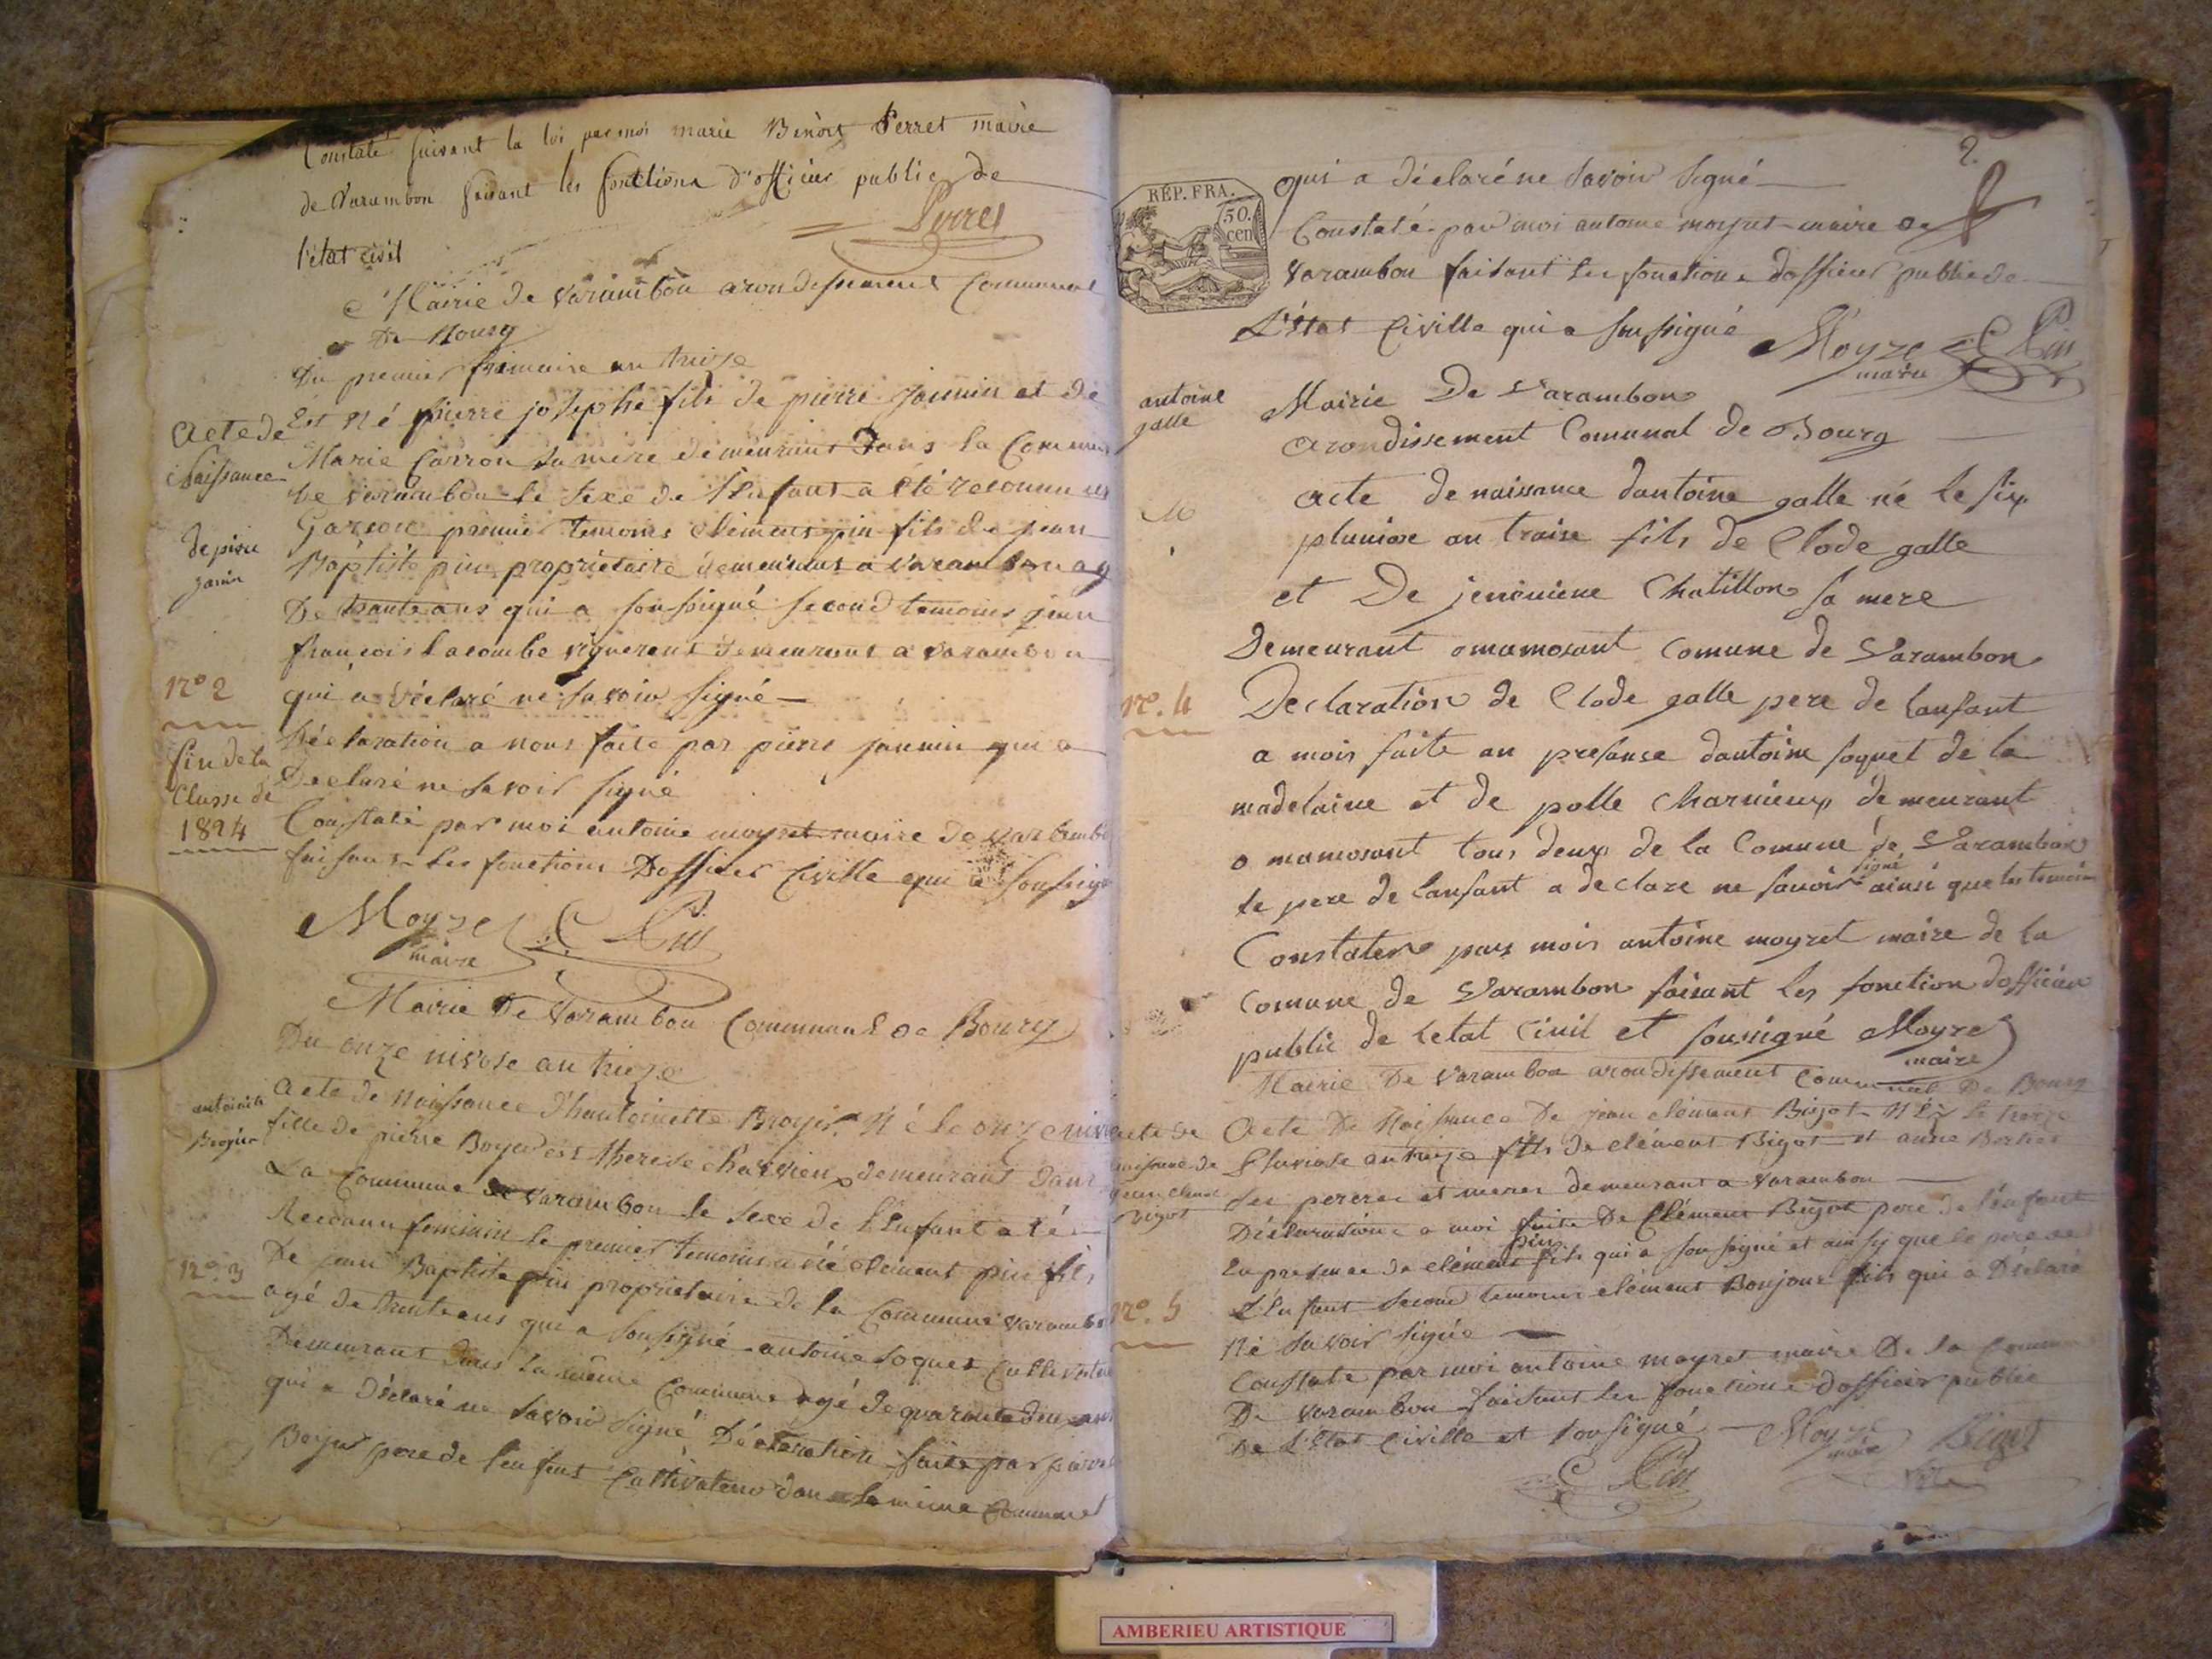 Constaté suivant la loi par moi marie Benoit Perret maire
de Varambon faisant les fonctions d'officier public de
l'état civil
Perret
Mairie de Varambon arondissement Communal
De Bourg
Du premier frimaire an treize
Est né pierre josephe fils de pierre jannin et de
Acte de
Naissance
de pierre
janin
Marie Carron sa mere demeurant dans la Commune
De varambon le sexe de l'Enfant a été reconnu
Garson premier temoins clément pin fils de jean
Baptiste pin propriétaire demeurant a varambon
De trante ans qui a sousigné second temoins jean
françois Lacombe vigneront demeurant a varambon
qui a déclaré ne savoir signé
n° 2
fin de la
Classe de
1824
Déclaration a nous faite par pierre jannin qui a
Declaré ne savoir signé
Constaté par moi antoine moyret maire de varambon
faisant les fonctions Dofficier Civille qui a sousigné
Moyret
maire
C Pin
Mairie De Varambon Communal de Bourg
Du onze nivose an treize
antoinette
Broyer
Acte de Naissance d'hantoinette Broyer Né le onze nivose
fille de pierre Boyer et therese charvieux demeurant dans
La Commune de varambon le sexe de l'Enfant a té
Reconnu feminin le premier temoins a été clement pin fils
n° 3
De jean Baptiste pin propriétaire de la Commune varambon
agé de trente ans qui a sousigné antoine soquet Cultivateur
Demeurant dans la même Commune agé de quarante deux ans
qui a Déclaré ne savoir signé Déclaration faite par pierre
Boyer pere de l'enfent Cultivateur dans la même Commune
2.
RÉP. FRA.
50.
cen
qui a déclaré ne savoir signé
Constaté par moi antoine moyret maire de
varambon faisant les fonctions dofficier public de
L'état Civille qui a sousigné
Moyret
maire
C Pin
antoine
galle
Mairie De Varambon
Arondissement Comunal de Bourg
acte de naissance dantoine galle né le six
pluviose an traise fils de Clode galle
et De jenevieve Chatillon sa mere
Demeurant omamosant Comune de Varambon
n°. 4
Declaration de Clode galle pere de lanfant
a mois faite an presanse dantoine soquet de la
madelaine et de polle Charvieux demeurant
o mamosant tous deux de la Comune de Varambon
le pere de lanfant a declare ne savoir signé ainsi que les temoins
Constater par mois antoine moyret maire de la
Comune de Varambon faisant les fonction dofficier
public de letat Civil et sousigné Moyret
maire
Mairie De Varambon arondissement Communal De Bourg
acte de
naissance de
jean clement
Bigot
Acte De Naissance De jean clément Bigot Né le treize
Pluviose an treize fils de clément Bigot et anne
ses peres et meres demeurant a varambon
Déclaration a moi faite De Clément Bigot pere de l'enfant
En presence de clément pin fils qui a sousigné et ainsy que le pere de
n°. 5
L'Enfant second temoins clément Bonjour fils qui a Déclaré
Né savoir signé
Constaté par moi antoine moyret maire De la Commune
De varambon faisant les fonctions dofficier public
De L'État Civille et sousigné
Moyret
maire
Bigot
C Pin
AMBERIEU ARTISTIQUE